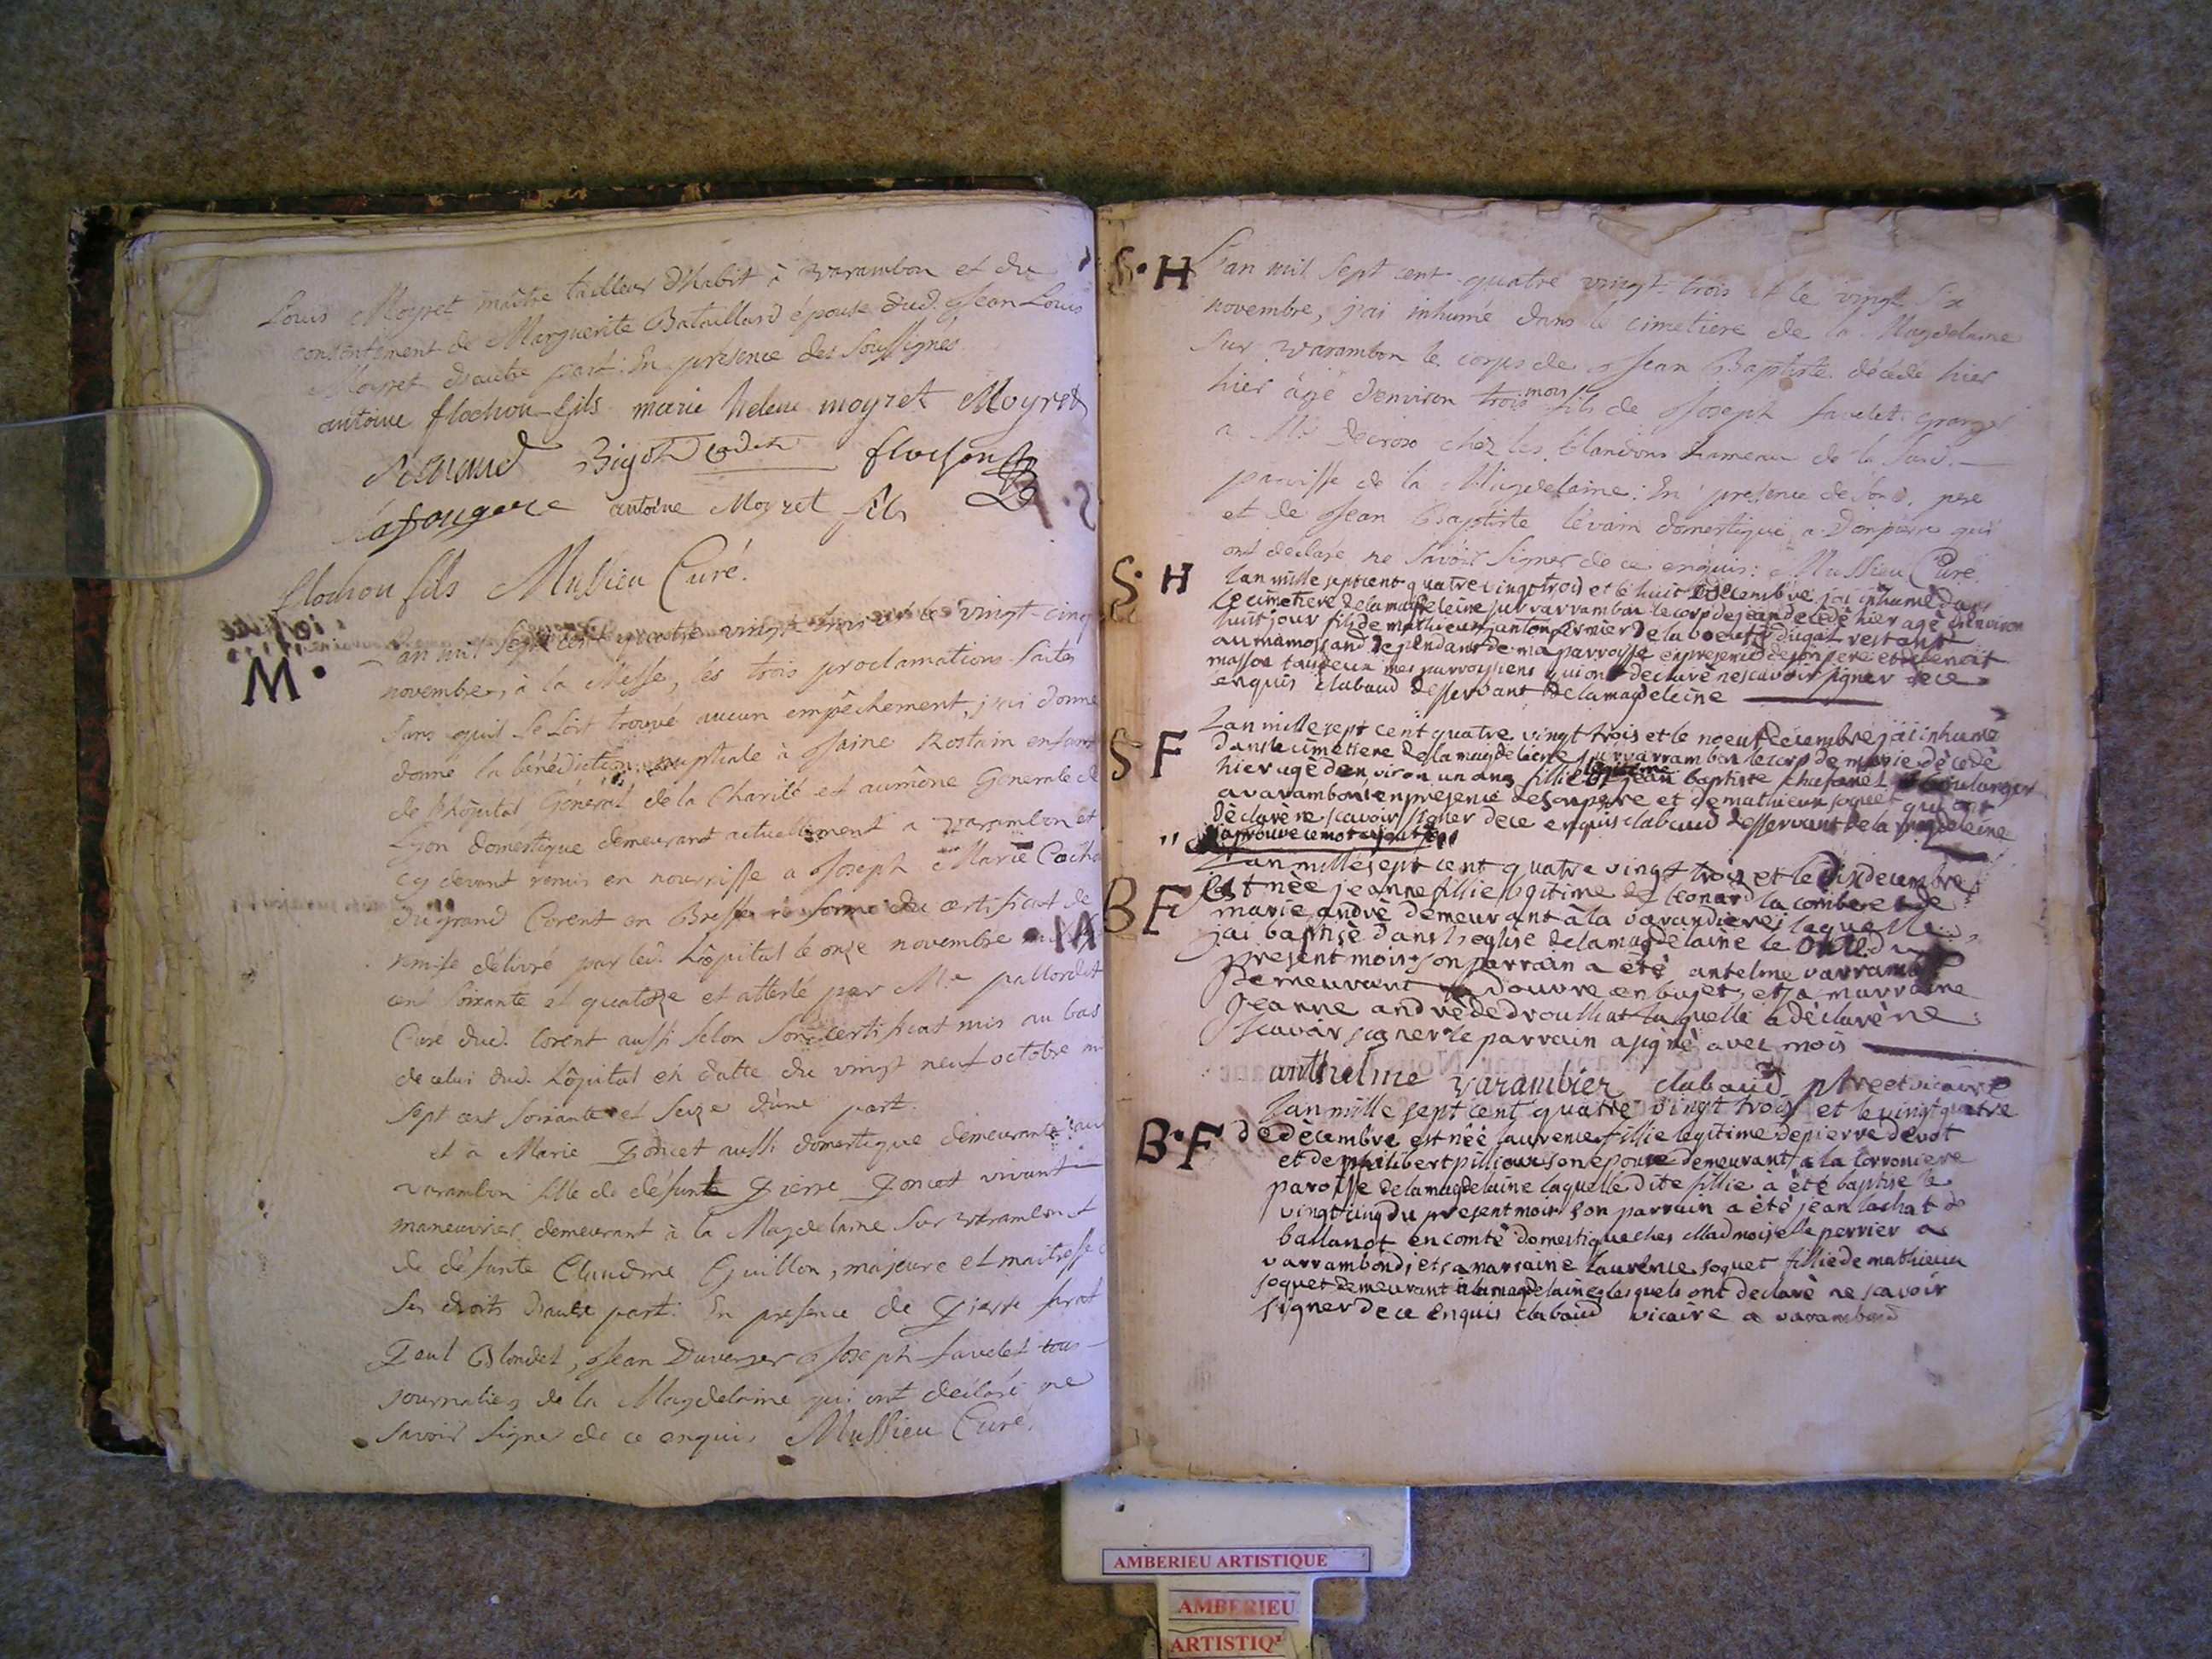 Louis Moyret maître tailleur d'habit à varambon et du
consentement de Marguerite Bataillard épouse dud. Jean Louis
Moyret d'autre part: En présence des soussignés.
antoine flochon fils marie helene moyret Moyret
Renaud Bigot Cadet flochon
Lafougere antoine Moyret fils
flochon fils Mussieu Curé.
M.
L'an mil sept cent quatre vingt trois et le vingt-cinq
novembre, à la Messe, les trois proclamations faites
sans quil se soit trouvé aucun empêchement, j'ai donné
donné la bénédiction nuptiale à Rostain enfant
de l'hôpital Général de la Charité et aumône Generale de
Lyon domestique demeurant actuellement a varambon et
cy devant remis en nourrisse a Joseph et Marie
du grand Corent en Bresse du certificat de
remise délivré par led. hôpital le onze novembre
cent soixante et quatorze et attesté par Mre
Curé dud. Corent aussi selon son certificat mis au bas
de celui dud. hôpital en datte du vingt neuf octobre mil
sept cent soixante et seize d'une part
et à Marie Poncet aussi domestique demeurante
varambon fille de défunt Pierre Poncet vivant
maneuvrier demeurant à la Magdelaine sur varambon et
de défunte Claudine Guillon, majeure et maitresse
ses droits d'autre part. En presence de Pierre
Paul Blondel, Jean Duverger Joseph favelet tous
journaliers de la Magdelaine qui ont déclaré ne
savoir signer de ce enquis Mussieu Curé.
S. H
L'an mil sept cent quatre vingt trois et le vingt six
novembre, j'ai inhumé dans le cimetiere de la Magdelaine
sur varambon le corps de Jean Baptiste décédé hier
hier âgé d'environ trois mois fils de Joseph favelet granger
a Mr Decroso chez les blandons hameau de la susd.
paroisse de la Magdelaine: En presence de sond. pere
et de Jean Baptiste levain domestique a Dompierre qui
ont déclaré ne savoir signer de ce enquis: Mussieu Curé.
S. H
Lan mille septcent quatrevingttrois et le huit décembre jai inhumé dans
le cimetiere de la magdeleine sur varrambon le corp de jean decedé hier agé denviron
huit jour fils de mathieux janton fermier de la du gat restant
au mamossand dependant de ma parroisse en presence de son pere et de benoit
masson tailleur mes parroissiens qui ont declaré ne scavoir signer de ce
enquis clabaud desservant de la magdeleine
S F
Lan mille sept cent quatre vingt trois et le noeuf décembre jai inhumé
dans le cimetiere de la magdeleine sur varrambon le corp de marie décedé
hier agé denviron un ans fillie legitime de jean baptiste chafanel boulanger
a varambon en presence de son pere et de mathieux soquet qui ont
déclaré ne scavoir signer de ce enquis clabaud desservant de la magdeleine
japrouve le mot
B F
Lan mille sept cent quatre vingt trois et le dix decembre
est née jeanne fillie légitime de leonard la combe et de
marie andré demeurant à la varandiere laquelle
jai baptisé dans leglise de la magdelaine le onze du
present mois son parrain a été antelme varrambier
demeurant a douvre en bugey et sa marraine
jeanne andré de drouillat laquelle a déclaré ne
scavoir signer le parrain a signé avec mois
anthelme varambier clabaud ptre et vicaire
B. F
Lan mille sept cent quatre vingt trois et le vingt quatre
de décembre est née laurence fillie legitime de pierre devot
et de philibert pillioux son epouse demeurant a la torroniere
paroisse de la magdelaine laquelle dite fillie a été baptise le
vingt cinq du present mois son parrain a été jean lachat de
ballanot en comté domestique ches Madmoiselle perrier a
varrambond; et sa marraine laurence soquet fillie de mathieux
soquet demeurant a la magdelaine lesquels ont declaré ne scavoir
signer de ce enquis clabaud vicaire a varambond
AMBERIEU ARTISTIQUE
AMBERIEU
ARTISTIQ